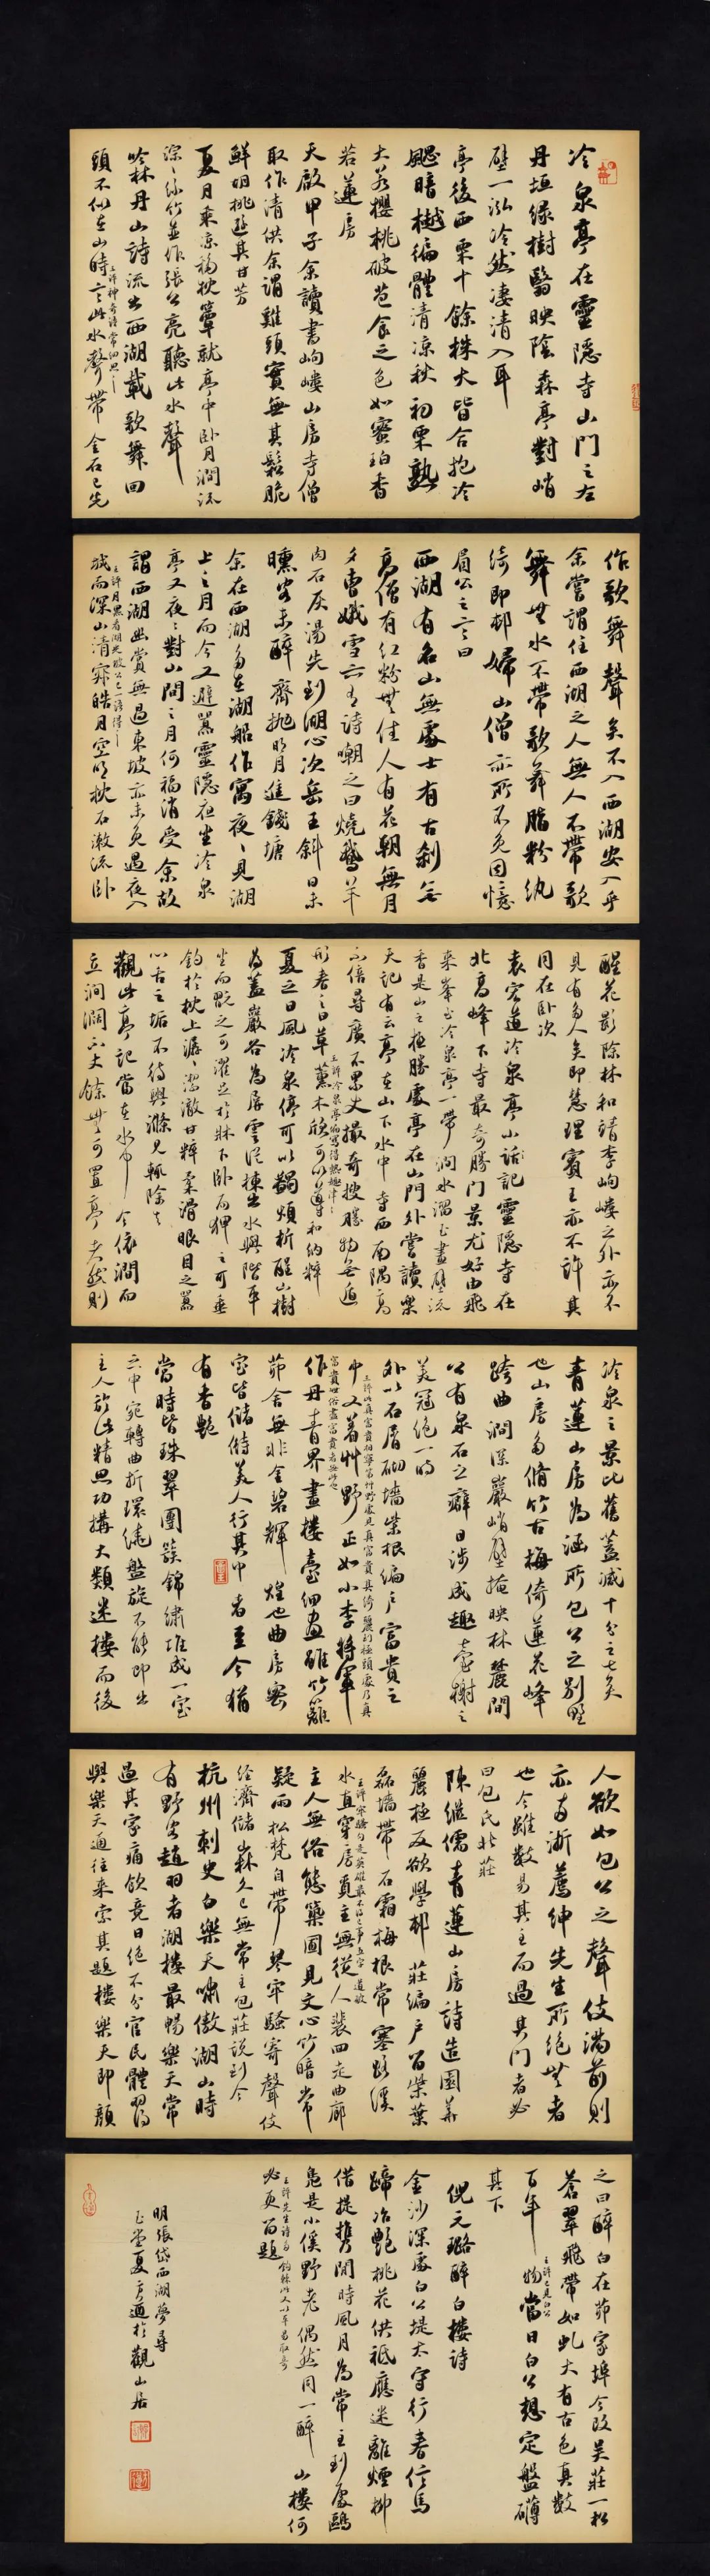 冷泉亭在靈隱寺山門之左
丹垣綠樹翳映陰森亭對峭
壁一泓泠然淒清入耳
亭後西栗十餘株大皆合抱冷
颸暗樾徧體清涼秋初栗熟
大若櫻桃破苞食之色如蜜珀香
若蓮房
天啟甲子余讀書岣嶁山房寺僧
取作清供余謂雞頭實無其鬆脆
鮮胡桃遜其甘芳
夏月乘涼移枕簟就亭中臥月澗流
淙淙絲竹並作張公亮聽此水聲
吟林丹山詩流出西湖載歌舞回
頭不似在山時言此水聲帶金石已先
作歌舞聲矣不入西湖安入乎
余嘗謂住西湖之人無人不帶歌
舞無山無水不帶歌舞脂粉紈
綺即邨婦山僧亦所不免因憶
眉公之言曰
西湖有名山無處士有古剎無
高僧有紅粉無佳人有花朝無月
夕曹娥雪亦有詩嘲之曰燒鵝羊
肉石灰湯先到湖心次岳王斜日未
曛客未醉齊拋明月進錢塘
余在西湖多在湖船作寓夜夜見湖
上之月而今又避囂靈隱夜坐冷泉
亭又夜夜對山間之月何福消受余故
謂西湖幽賞無過東坡亦未免遇夜入
城而深山清寂皓月空明枕石漱流臥
醒花影除林和靖李岣嶁之外亦不
見有多人矣即慧理賓王亦不許其
同在臥次
袁宏道冷泉亭小話記靈隱寺在
北高峰下寺最奇勝門景尤好由飛
來峯至冷泉亭一帶澗水溜玉畫壁流
香是山之極勝處亭在山門外嘗讀樂
天記有云亭在山下水中寺西南隅高
不倍尋廣不累丈撮奇搜勝物無遁
形春之日草薰木欣可以導和納粹
夏之日風泠泉停可以蠲煩析酲山樹
為蓋巖谷為屏雲從棟出水與階平
坐而翫之可濯足於牀下臥而狎之可垂
釣於枕上潺潺潔澈甘粹柔滑眼目之囂
心舌之垢不待盥滌見輒除去
觀此亭記當在水中今依澗而
立澗闊不丈餘無可置亭者然則
冷泉之景比舊蓋減十分之七矣
青蓮山房為涵所包公之別墅
也山房多脩竹古梅倚蓮花峰
跨曲澗深巖峭壁掩映林麓間
公有泉石之癖日涉成趣臺榭之
美冠絕一時
外以石屑砌墻柴根編戶富貴之
中又著艸野正如小李將軍
作丹青界畫樓臺細畫雖竹籬
茆舍無非金碧輝煌也曲房密
室皆儲偫美人行其中者至今猶
有香艷
當時皆珠翠團簇錦繡堆成一室
之中宛轉曲折環繞盤旋不能即出
主人於此精思巧搆大類迷樓而後
人欲如包公之聲伎滿前則
亦兩浙薦紳先生所絕無者
也今雖數易其主而過其門者必
曰包氏北莊
陳繼儒青蓮山房詩造園華
麗極反欲學邨莊編戶留柴葉
磊墻帶石霜梅根常塞路溪
水直穿房覓主無從人裴回走曲廊
主人無俗態築圃見文心竹暗常
疑雨松梵自帶琴牢騷寄聲伎
經濟儲山森久已無常主包莊說到今
杭州刺史白樂天嘯傲湖山時
有野客趙羽者湖樓最暢樂天常
過其家痛飲竟日絕不分官民體羽得
與樂天通往來索其題樓樂天即顏
之曰醉白在茆家埠今改吳莊一松
蒼翠飛帶如虬大有古色真數
百年物當日白公想定盤礴
其下
倪元璐醉白樓詩
金沙深處白公堤太守行春信馬
蹄冶艷桃花供祗應迷離煙柳
借提攜閒時風月為常主到處鷗
鳧是小傒野老偶然同一醉山樓何
必更留題
明張岱西湖夢尋